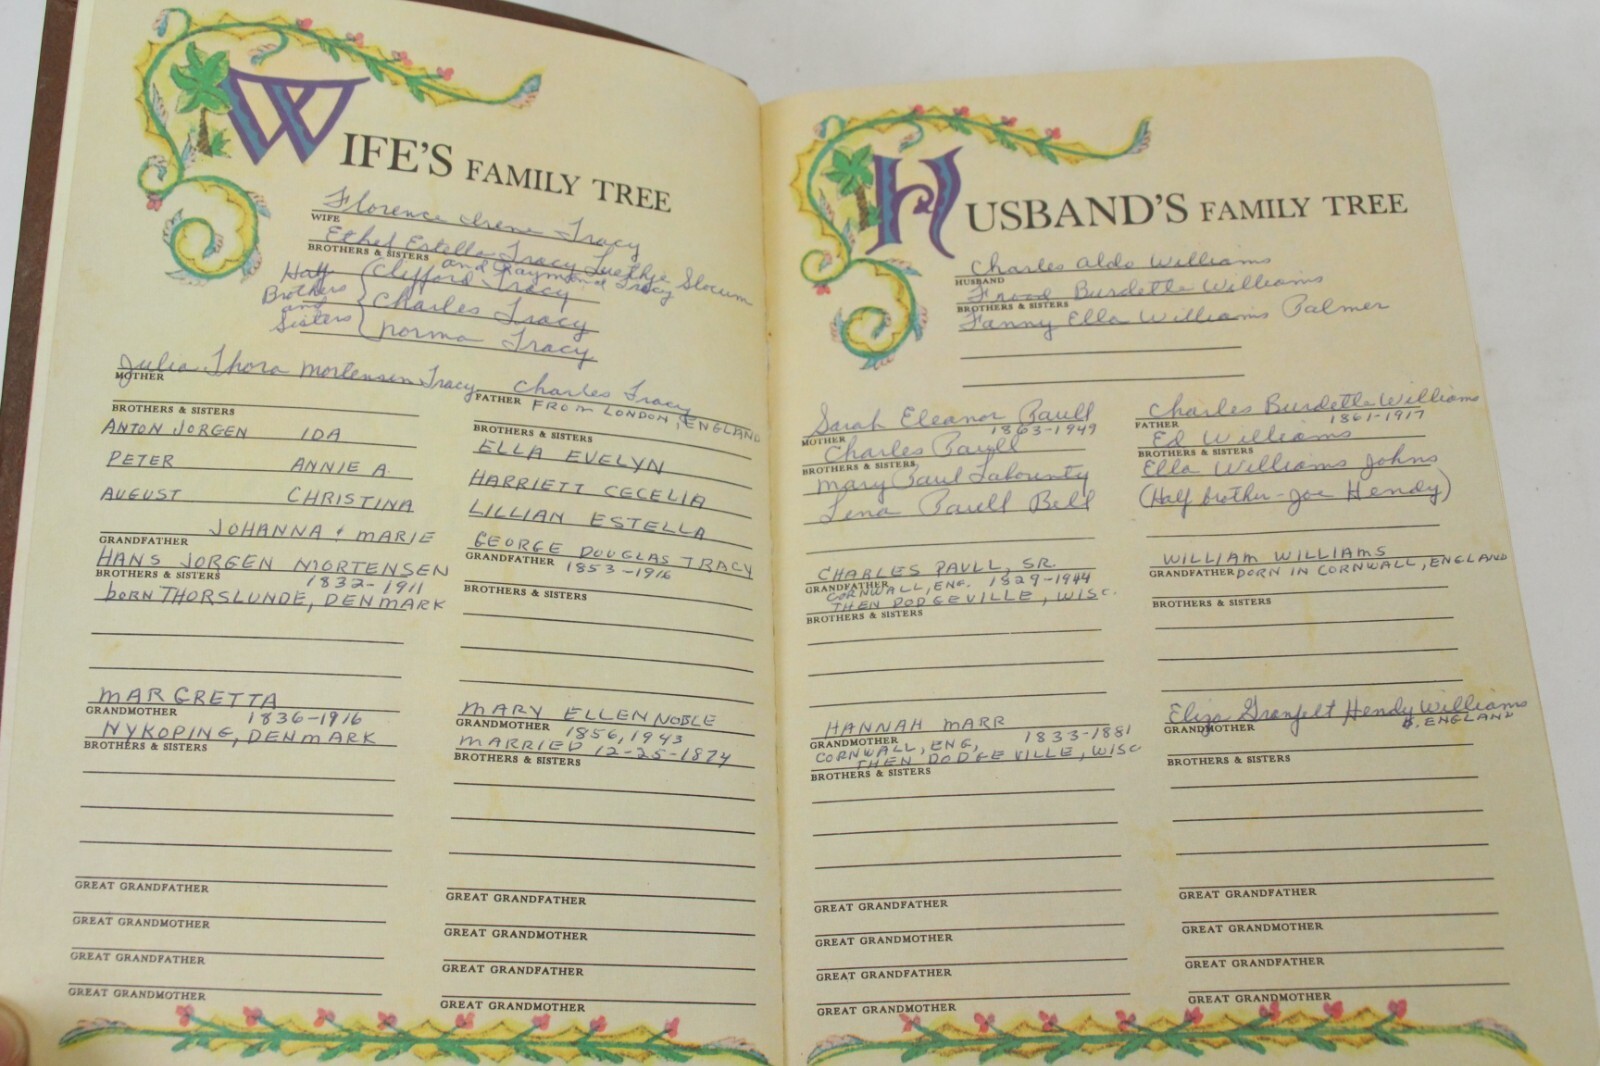 WIFE'S FAMILY TREE
Florence Irene Tracy
WIFE
Ethel Estelle Tracy Luethje Slocum
BROTHERS & SISTERS
and Raymond Tracy
Half Brothers and Sisters
Clifford Tracy
Charles Tracy
Norma Tracy
Julia Thora Mortensen Tracy
MOTHER
BROTHERS & SISTERS
ANTON JORGEN IDA
PETER ANNIE A.
AUGUST CHRISTINA
JOHANNA & MARIE
GRANDFATHER
HANS JORGEN MORTENSEN
BROTHERS & SISTERS 1832-1911
born THORSLUNDE, DENMARK
MARGRETTA
GRANDMOTHER 1836-1916
NYKOPING, DENMARK
BROTHERS & SISTERS
GREAT GRANDFATHER
GREAT GRANDMOTHER
GREAT GRANDFATHER
GREAT GRANDMOTHER
Charles Tracy
FATHER FROM LONDON, ENGLAND
BROTHERS & SISTERS
ELLA EVELYN
HARRIETT CECELIA
LILLIAN ESTELLA
GEORGE DOUGLAS TRACY
GRANDFATHER 1853-1916
BROTHERS & SISTERS
MARY ELLEN NOBLE
GRANDMOTHER 1856, 1943
MARRIED 12-25-1874
BROTHERS & SISTERS
GREAT GRANDFATHER
GREAT GRANDMOTHER
GREAT GRANDFATHER
GREAT GRANDMOTHER
HUSBAND'S FAMILY TREE
Charles Aldo Williams
HUSBAND
Burdette Williams
BROTHERS & SISTERS
Fanny Ella Williams Palmer
Sarah Eleanor Paull
MOTHER 1863-1949
Charles Paull
BROTHERS & SISTERS
Mary Paul Labounty
Lena Paull Bell
CHARLES PAULL, SR.
GRANDFATHER
CORNWALL, ENG. 1829-1944
THEN DODGEVILLE, WISC.
BROTHERS & SISTERS
HANNAH MARR
GRANDMOTHER 1833-1881
CORNWALL, ENG,
THEN DODGEVILLE, WISC
BROTHERS & SISTERS
GREAT GRANDFATHER
GREAT GRANDMOTHER
GREAT GRANDFATHER
GREAT GRANDMOTHER
Charles Burdette Williams
FATHER 1861-1917
Ed Williams
BROTHERS & SISTERS
Ella Williams Johns
(Half brother-Joe Hendy)
WILLIAM WILLIAMS
GRANDFATHER BORN IN CORNWALL, ENGLAND
BROTHERS & SISTERS
Eliza Granfelt Hendy Williams
GRANDMOTHER B. ENGLAND
BROTHERS & SISTERS
GREAT GRANDFATHER
GREAT GRANDMOTHER
GREAT GRANDFATHER
GREAT GRANDMOTHER